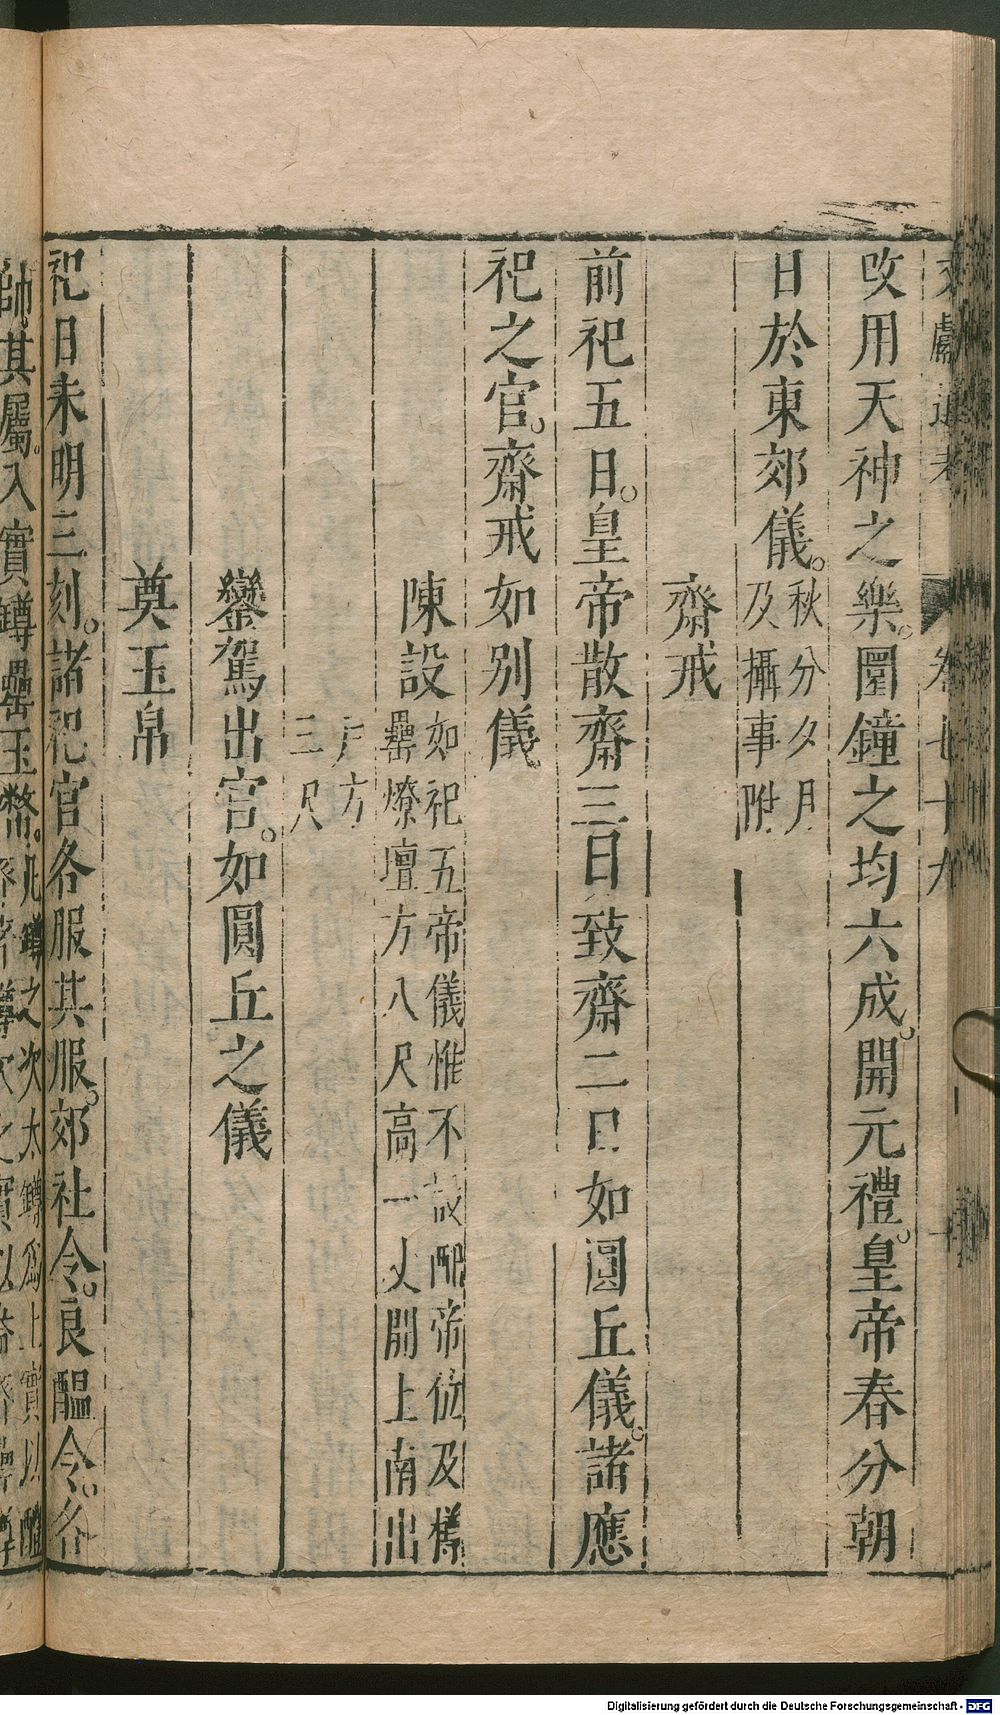 文獻通考 卷七十九
改用天神之樂。圜鐘之均六成。開元禮。皇帝春分朝
日於東郊儀。秋分夕月
及攝事附
齋戒
前祀五日。皇帝散齋三日致齋二日如圓丘儀。諸應
祀之官。齋戒如別儀
陳設如祀五帝儀惟不設配帝位及樽
罍燎壇方八尺高一丈開上南出
戶方
三尺
鑾駕出宮。如圓丘之儀
奠玉帛
祀日未明三刻。諸祀官各服其服。郊社令。良醞令。各
帥其屬。入實罇罍玉幣。凡罇之次太罇爲上實以醴
Digitalisierung gefördert durch die Deutsche Forschungsgemeinschaft - DFG